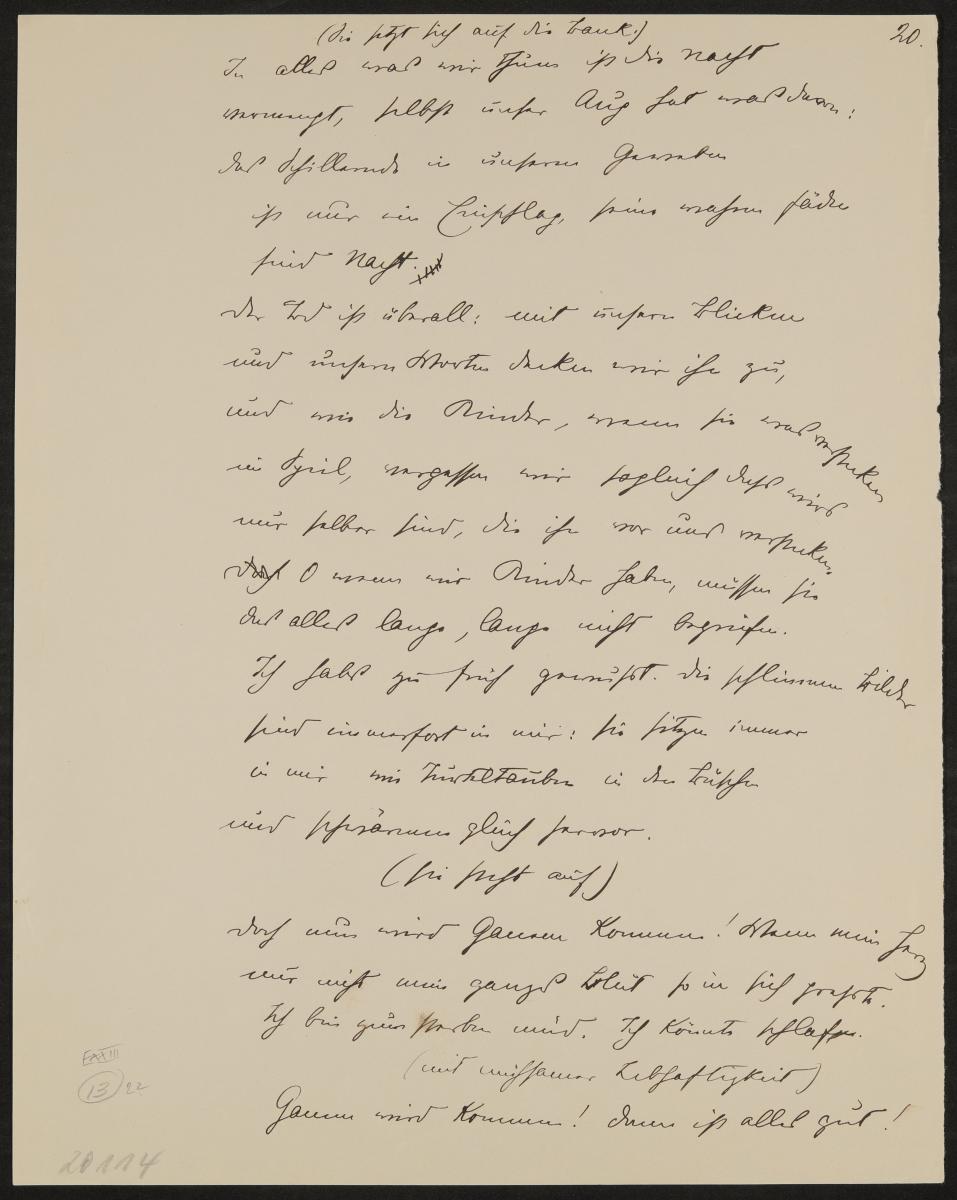 20.
(Sie setzt sich auf die Bank.)
In alles was wir thuen ist die Nacht
vermengt, selbst unser Aug hat was davon:
das Schillernde in unseren Geweben
ist nur ein Einschlag, seine wahren Fäden
sind Nacht.
Der Tod ist überall: mit unsern Blicken
und unsern Worten decken wir ihn zu,
und wie die Kinder, wenn sie was verstecken
im Spiel, vergessen wir sogleich dass wirs
nur selber sind, die ihn vor uns verstecken.
O wenn wir Kinder haben, müssen sie
das alles lange, lange nicht begreifen.
Ich habs zu früh gewusst. Die schlimmen Bilder
sind immerfort in mir: sie sitzen immer
in mir wie Turteltauben in den Büschen
und schwärmen gleich hervor.
(sie steht auf)
Doch nun wird Ganem kommen! Wenn mein Herz
nur nicht mein ganzes Blut so in sich presste.
Ich bin zum sterben müd. Ich könnte schlafen.
(mit mühsamer Lebhaftigkeit)
Ganem wird kommen! dann ist alles gut!
13
22
20114